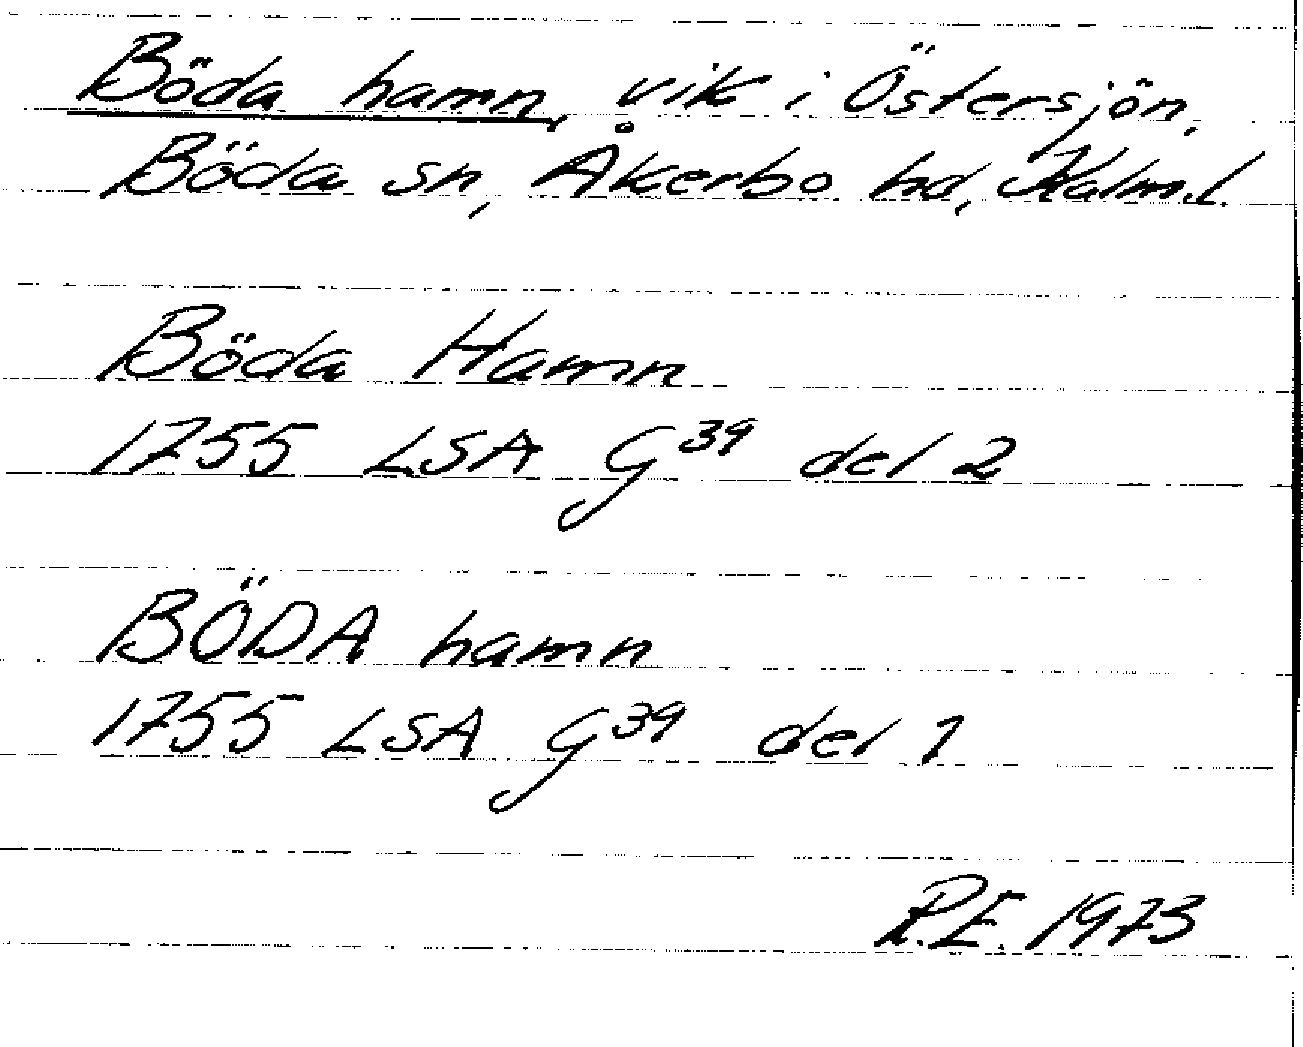 Böda hamn, vik i Östersjön,
Böda sn, Åkerbo hd, Kalm.l.
Böda Hamn
1755 LSA G39 del 2
BÖDA hamn
1755 LSA G39 del 1
R.E. 1973